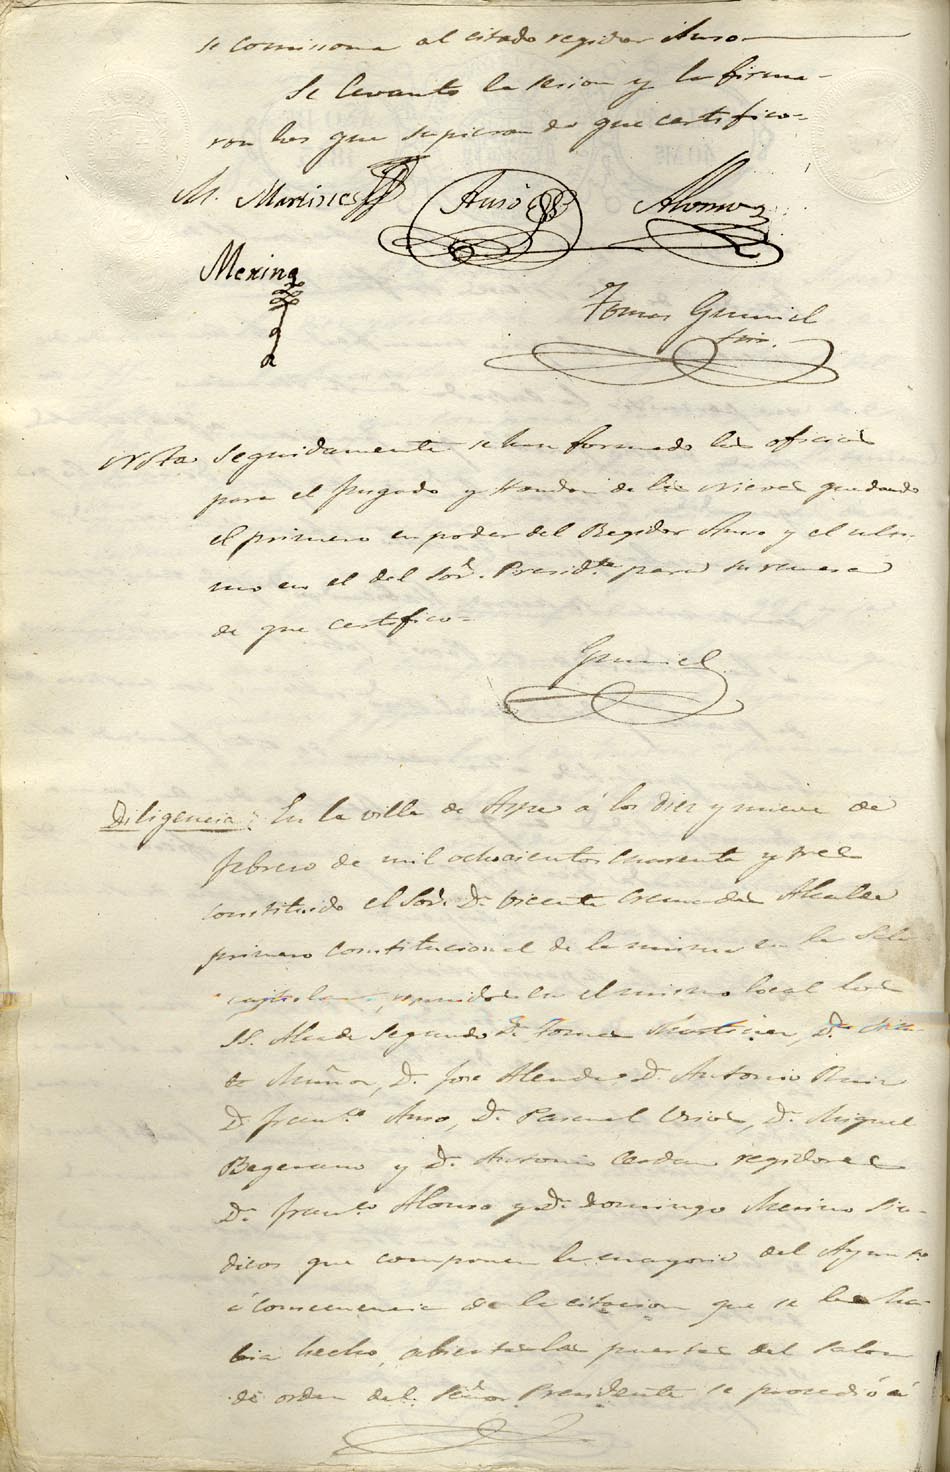 se comisiona al citado regidor Auso
Se levanto la sesion y la firma-
ron los que supieron de que certifico=
M. Martinez Auso Alonso
Merino
Tomas Gumiel
Srio.
Nota Seguidamente se han formado los oficios
para el Juzgado y de las Nieves quedando
el primero en poder del Regidor Auso y el ulti-
mo en el del Sor. Presidte. para su remesa
de que certifico=
Gumiel
Diligencia: En la villa de Aspe á los diez y nueve de
febrero de mil ochocientos cuarenta y tres
constituido el Sor. Dn. Vicente Cremades Alcalde
primero constitucional de la misma en la Sala
capitular, reunidos en el mismo local los
SS. Alcade Segundo Dn. Tomas Martinez, Dn.
Muñoz, D. Jose Alenda, D. Antonio Ruiz
D. Franco. Auso, Dn. Pascual Urios, Dn. Miguel
y Dn. Antonio Cerdan regidores
Dn. Franco. Alonso y Dn. Domingo Merino Sin-
dicos que componen la mayoria del Ayunto.
á consecuencia de la citacion que se les ha-
bia hecho, abiertas las puertas del Salon
de orden del Señor Presidente se procedió á